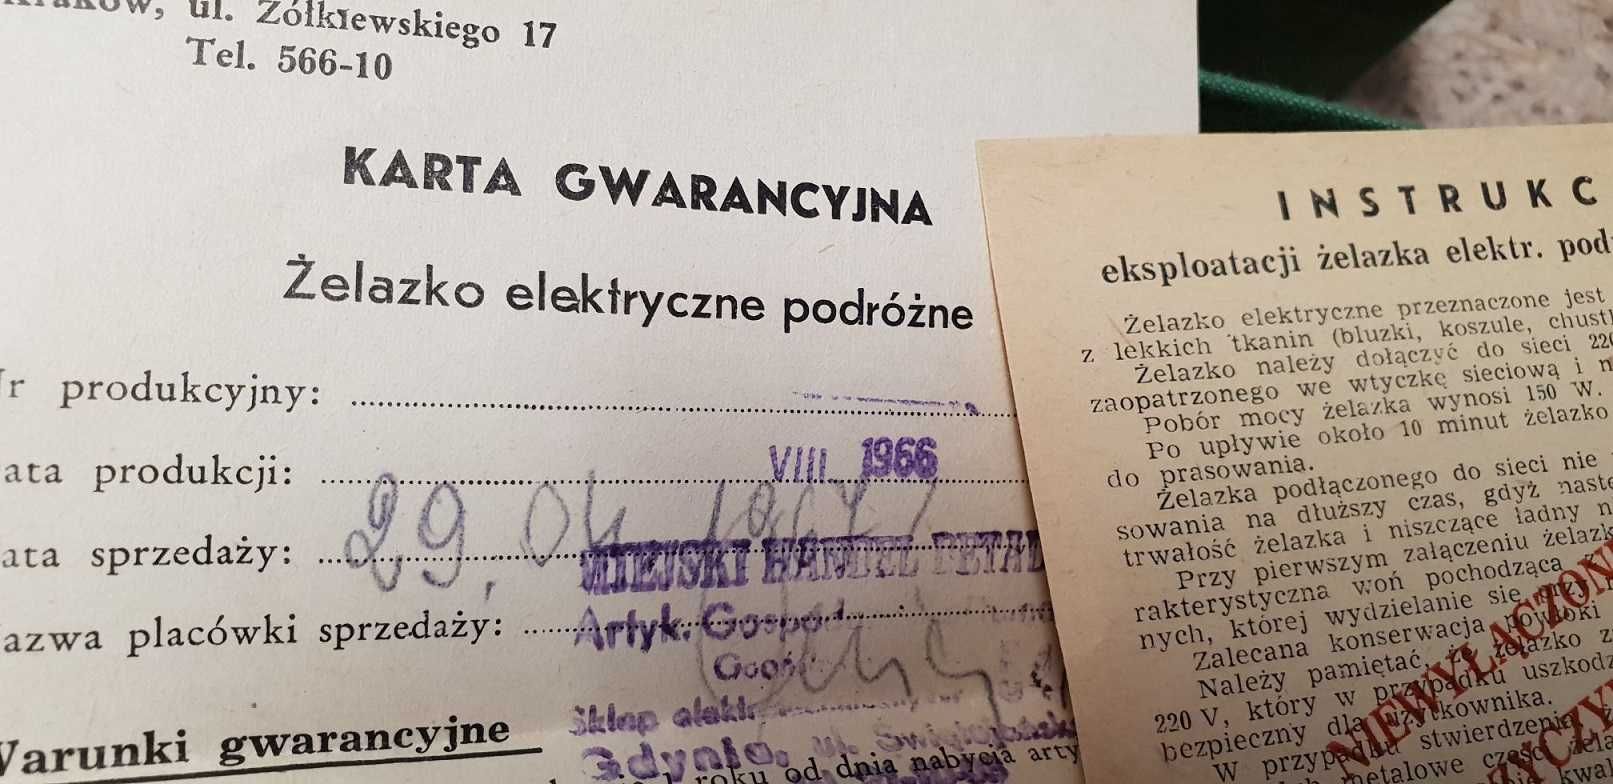 ul. Żółkiewskiego 17
Tel. 566-10
KARTA GWARANCYJNA
Żelazko elektryczne podróżne
produkcyjny:
produkcji: VIII. 1966
sprzedaży: 29, 04
MIEJSKI HANDEL DETAL
placówki sprzedaży: Artyk. Gospod
Sklep elektr
Gdynia, ul. Świętojańska
Warunki gwarancyjne
roku od dnia nabycia arty
INSTRUKC
eksploatacji żelazka elektr. pod
Żelazko elektryczne przeznaczone jest
z lekkich tkanin (bluzki, koszule, chust
Żelazko należy dołączyć do sieci 220
zaopatrzonego we wtyczkę sieciową i
Pobór mocy żelazka wynosi 150 W.
Po upływie około 10 minut żelazko
do prasowania.
Żelazka podłączonego do sieci nie
sowania na dłuższy czas, gdyż nastę
trwałość żelazka i niszczące ładny
Przy pierwszym załączeniu żelazk
rakterystyczna woń pochodząca z
nych, której wydzielanie się przy
Zalecana konserwacja powłoki
Należy pamiętać, że żelazko
220 V, który w przypadku uszkodz
bezpieczny dla użytkownika.
W przypadku stwierdzenia
metalowe część żela
NIEWYŁĄCZON